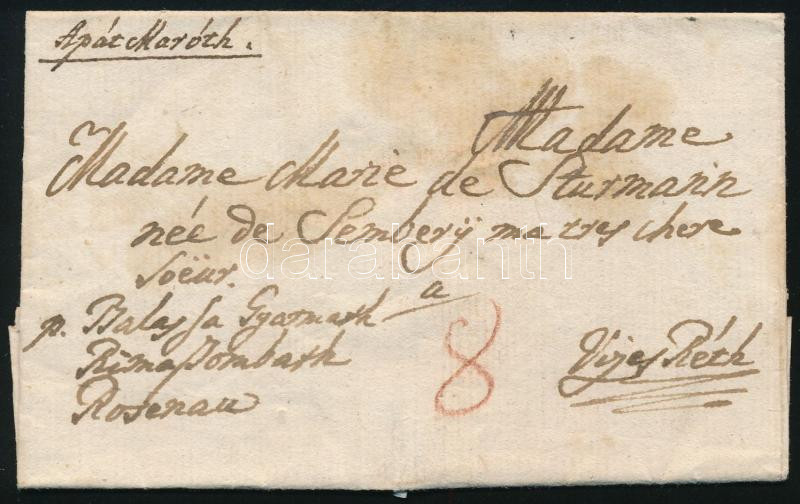 Apát Maróth.
Madame
Madame Marie de Sturmann
née de Semberÿ ma tres chere
soëur.
a
p. Balassa Gyarmath
Rimaszombath
Rosenau
8
Vizes Réth
darabanth